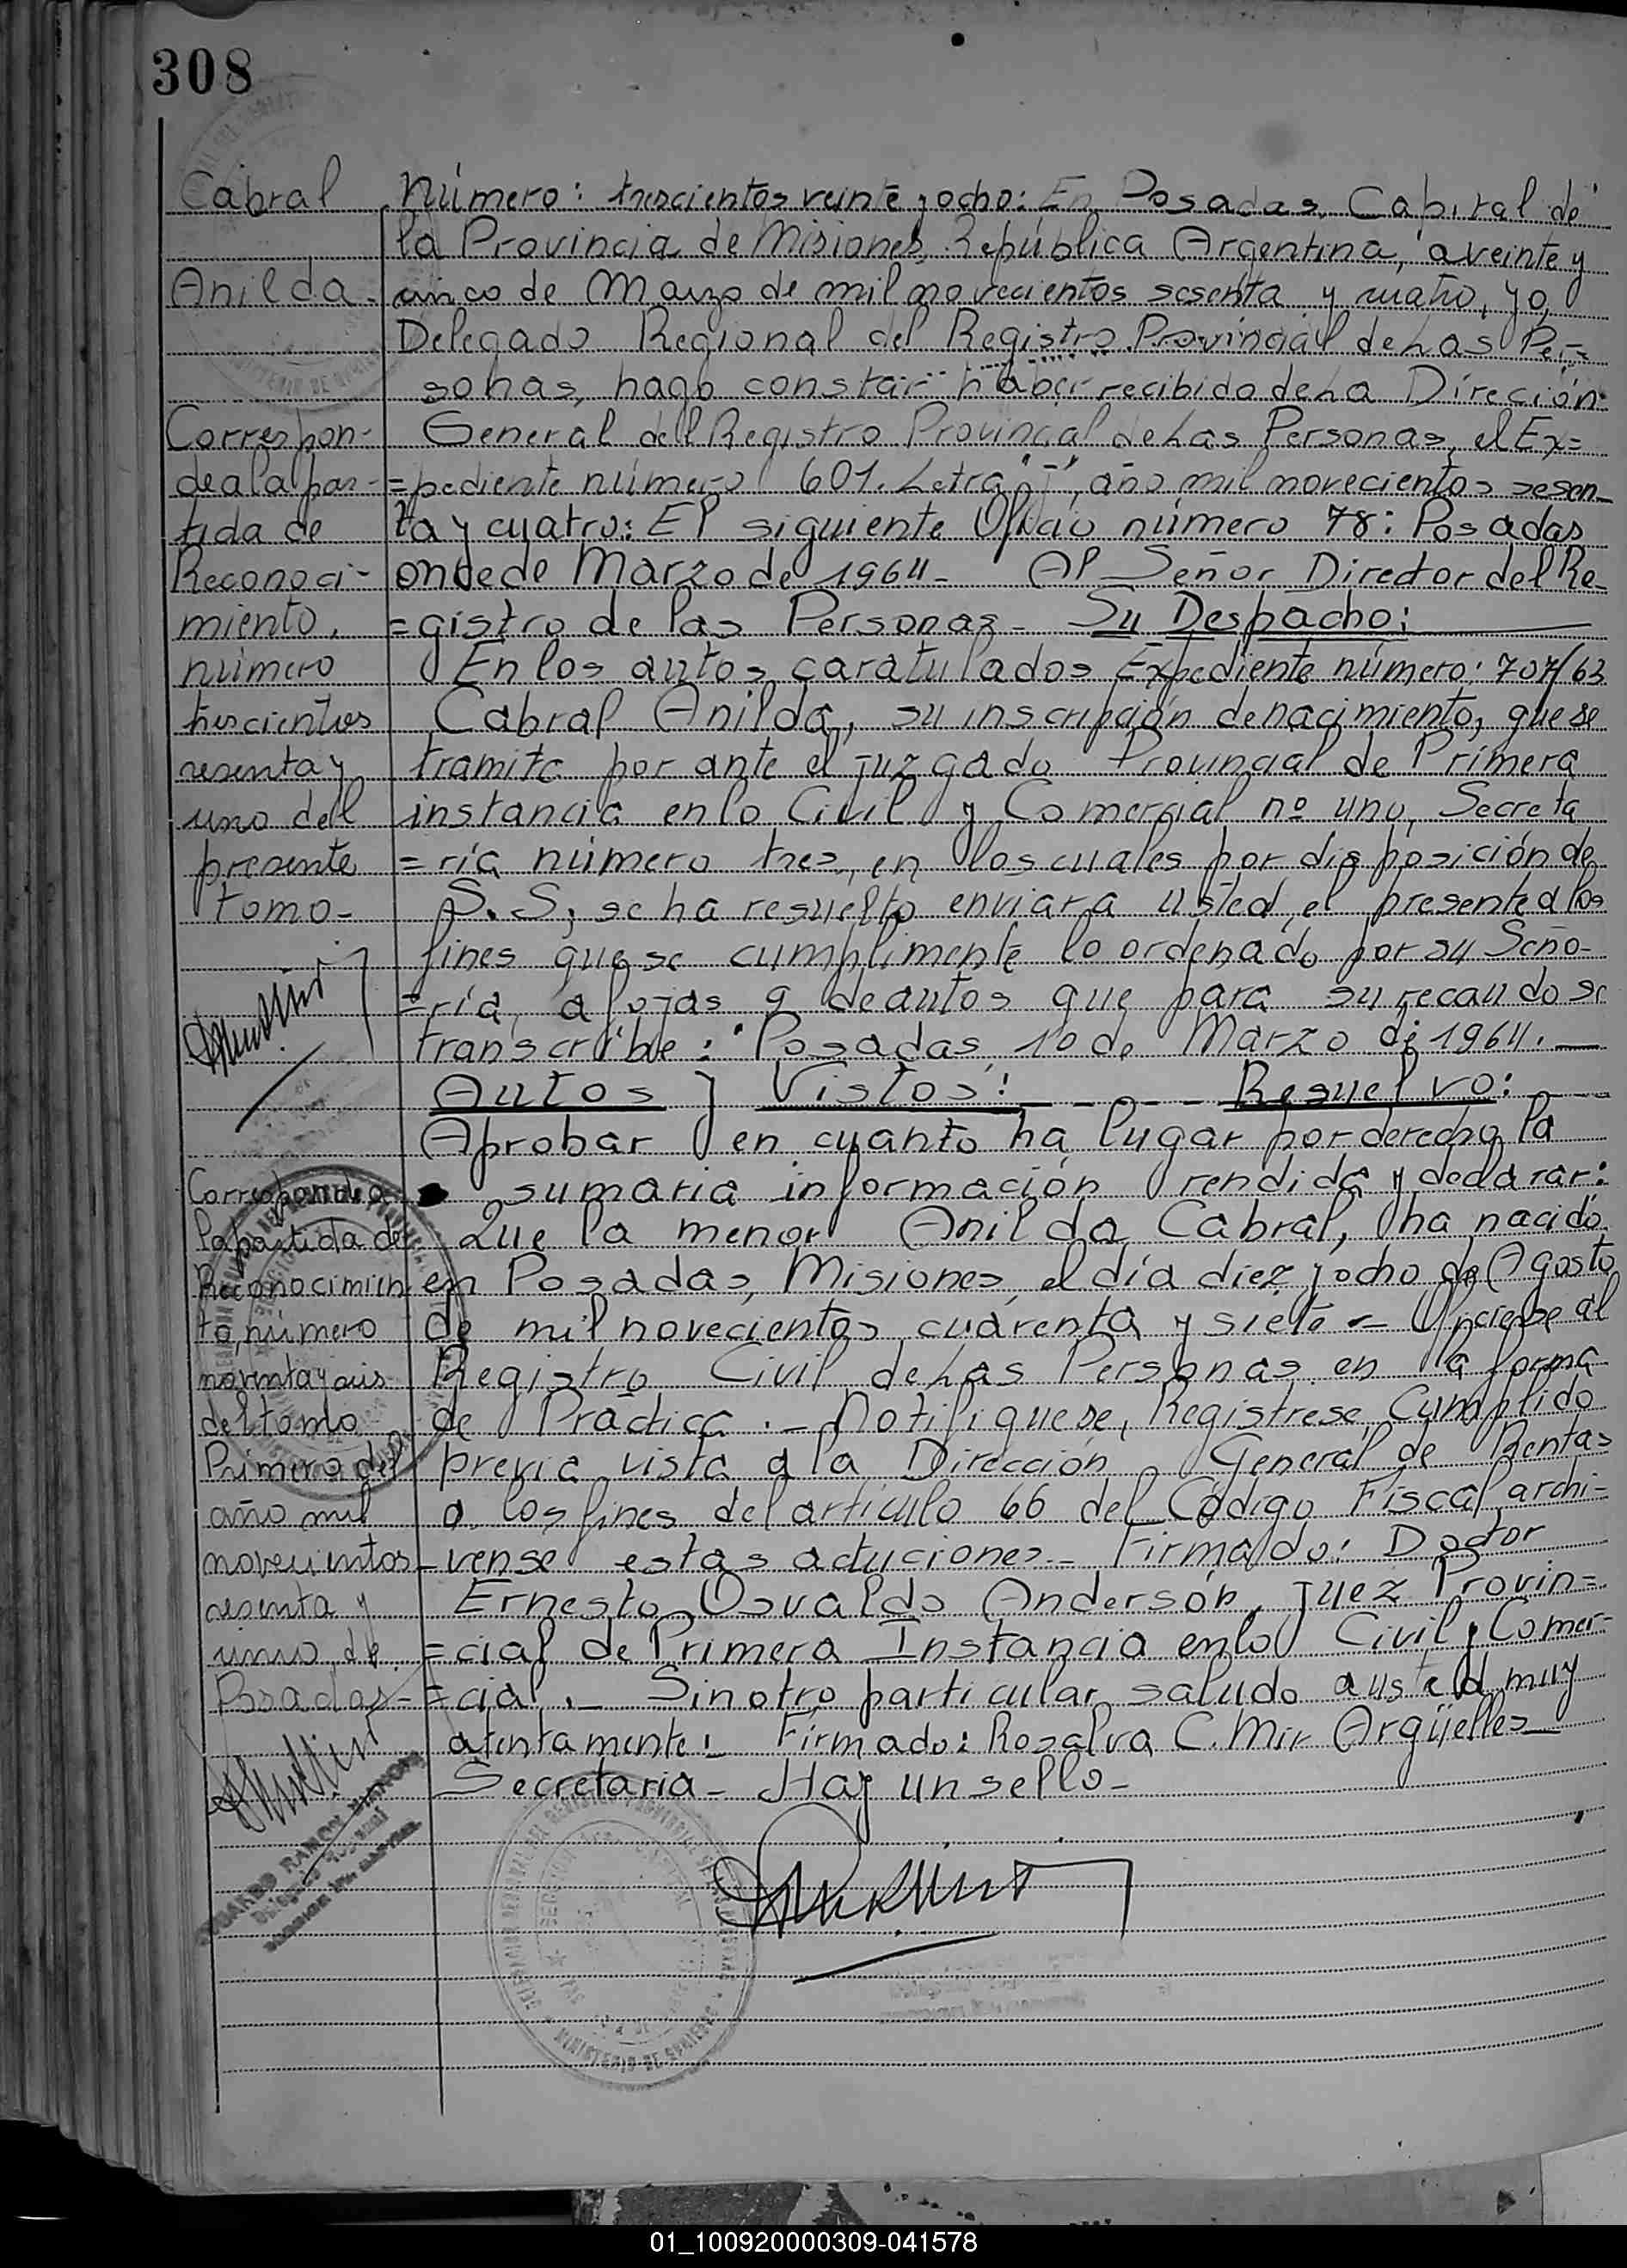 308
Cabral
Anilda.
Correspon-
de a la par-
tida de
Reconoci-
miento.
número
trescientos
sesenta y
uno del
presente
tomo-
Corresponde a
la partida de
Reconocimien
to, número
noventa y seis
del tomo
Primero del
año mil
novecientos
sesenta y
de
Posadas-
Número: trescientos veinte y ocho: En Posadas, Capital de
la Provincia de Misiones, República Argentina, a veinte y
cinco de Marzo de mil novecientos sesenta y cuatro, yo,
Delegado Regional del Registro Provincial de Las Per-
sonas, hago constar haber recibido de La Direción
General del Registro Provincial de Las Personas, el Ex=
=pediente número 601. Letra año mil novecientos sesen-
ta y cuatro: El siguiente Oficio número 78: Posadas
once de Marzo de 1964- Al Señor Director del Re-
=gistro de las Personas- Su Despacho:
En los autos caratulados Expediente número: 707/63
Cabral Anilda, su inscripción de nacimiento, que se
tramita por ante el juzgado Provincial de Primera
instancia en lo Civil y Comercial nº uno, Secreta
=ría número tres, en los cuales por disposición de
S.S, se ha resuelto enviar a usted, el presente a los
fines que se cumplimente lo ordenado por su Seño-
=ría, a fojas 9 de autos que para su recaudo se
transcribe: "Posadas, 1º de Marzo de 1964.-
Autos y Vistos: Resuelvo:
Aprobar en cuanto ha lugar por derecho la
sumaria información rendida y declarar:
Que la menor Anilda Cabral, ha nacido
en Posadas, Misiones, el día diez y ocho de Agosto
de mil novecientos cuarenta y siete - al
Registro Civil de Las Personas en la forma
de Práctica.- Notifiquese, Registrese, Cumplido
previa vista a la Dirección General de Rentas
a los fines del artículo 66 del Código Fiscal archi-
-vense estas actuciones.- Firmado: Doctor
Ernesto Osvaldo Anderson, juez Provin=
=cial de Primera Instancia en lo Civil y Comer-
=cial.- Sin otro particular saludo a usted muy
atentamente: Firmado: Rosalva C. Mir Argüelles-
Secretaria- Hay un sello-
MINISTERIO DE GOBIERNO
01_100920000309-041578